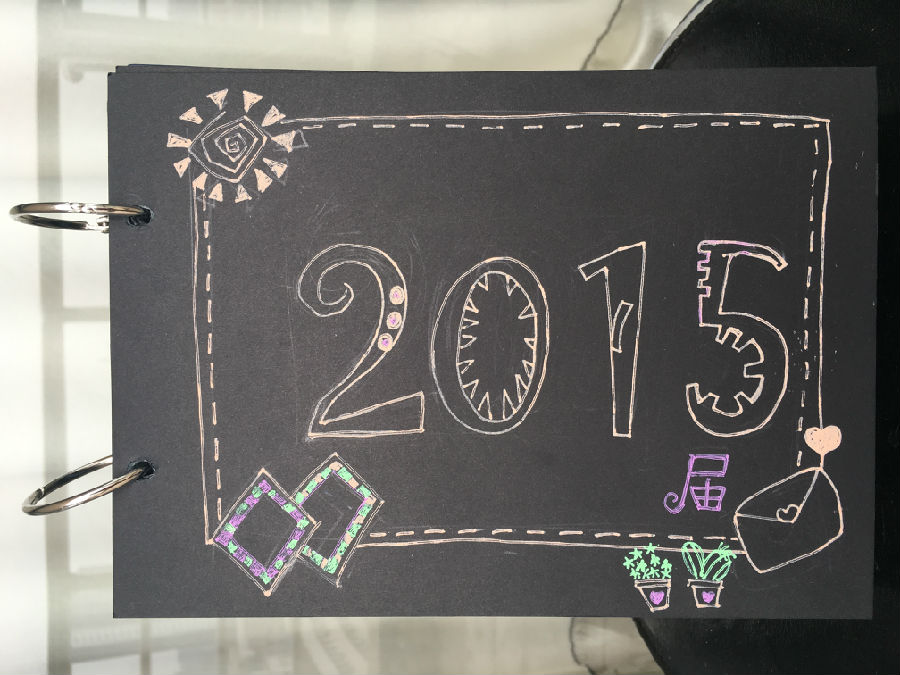 2015
届